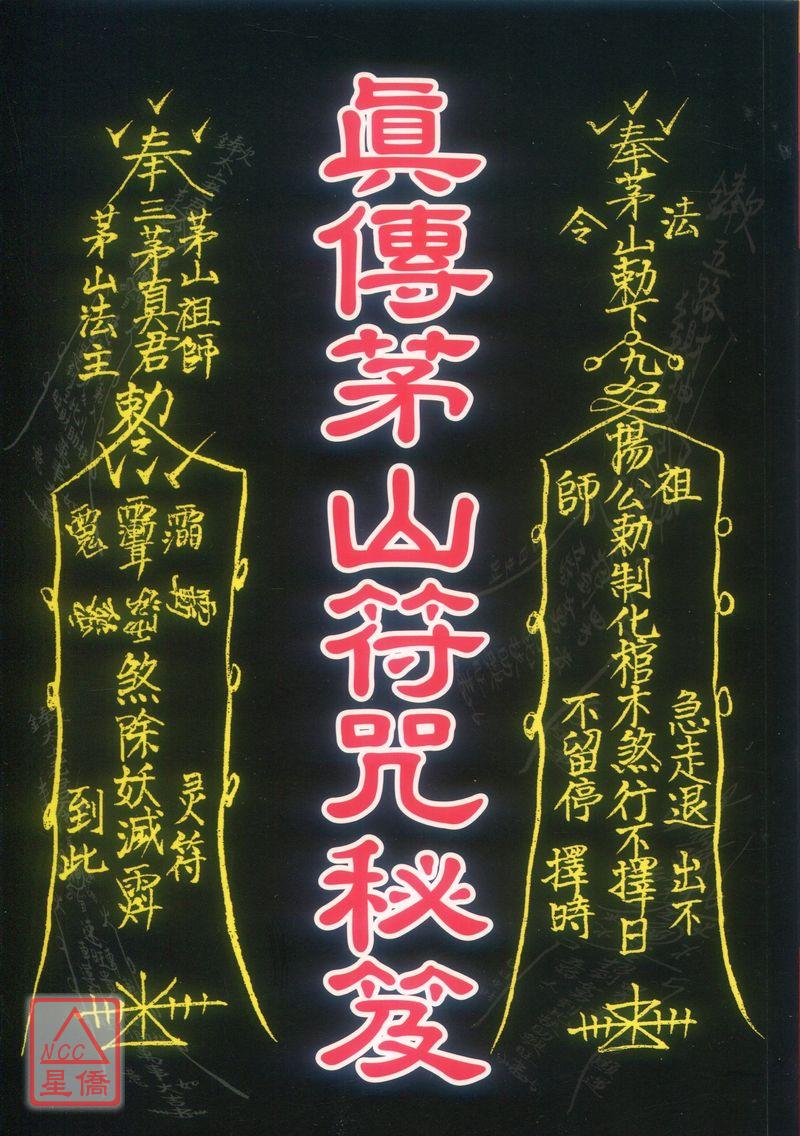 奉茅山勅下九
法
令
楊公勅制化棺木煞行不擇日
祖
師
急走退
出不
不留停
擇時
眞傳茅山符咒秘笈
奉三茅真君
茅山祖師
茅山法主
勅令
煞除妖滅
灵符
到此
NCC
星僑